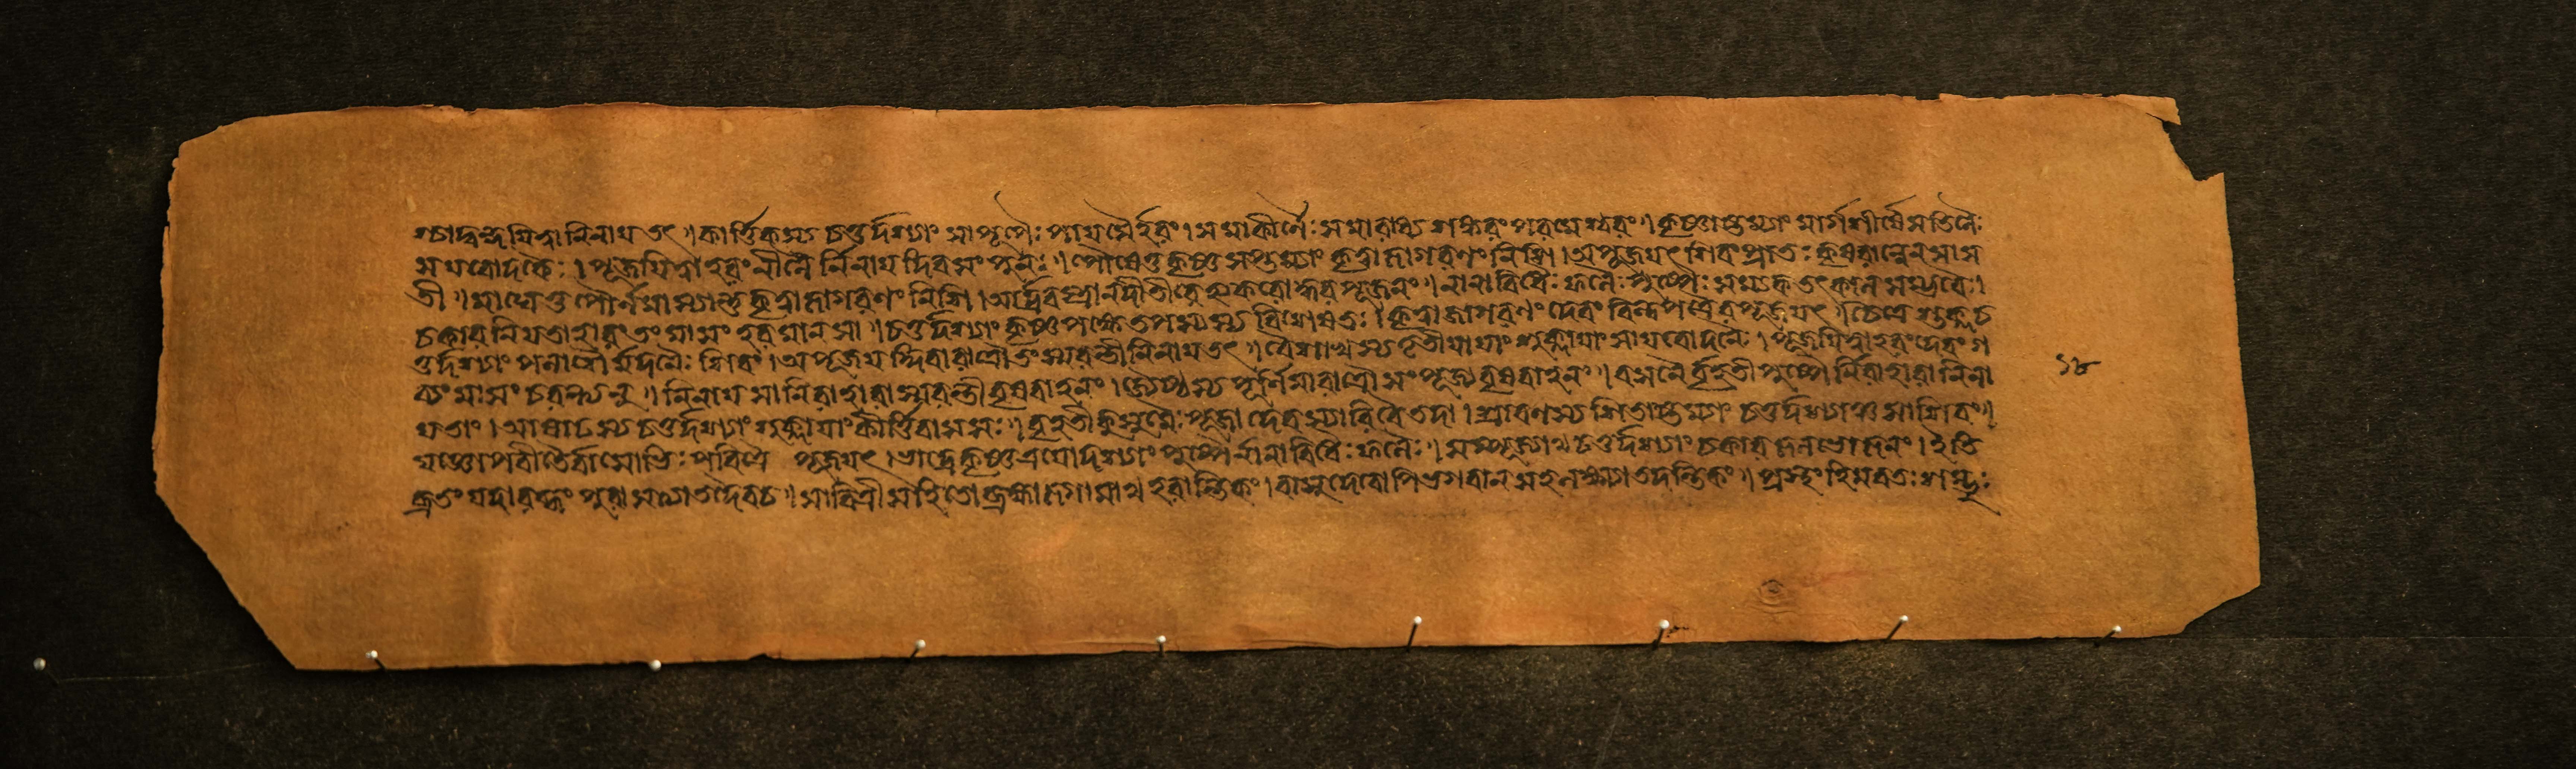 কার্ত্তিকস্য চতুর্দশ্যাং সাপূপৈঃ পায়সৈর্হরং। সমাকীর্ণৈঃ সমারাধ্য শঙ্করং পরমেশ্বরং॥ কৃষ্ণাষ্টম্যাং মার্গশীর্ষে সতিলৈঃ
সযবোদকৈঃ। পূজয়িত্বা হরং নীলৈ র্নিনায় দিবসং পুনঃ॥ পৌষেতু কৃষ্ণসপ্তম্যাং কৃত্বাজাগরণং নিশি। অপূজয়ৎ শিবং প্রাতঃ কৃষরান্নেন সাস
তী॥ মাঘেতু পৌর্নমাস্যান্তু কৃত্বাজাগরণং নিশি। আর্দ্রবস্ত্রা নদীতীরে হ্যকরোদ্ধরপূজনং॥ নানাবিধৈঃ ফলৈঃ পুষ্পৈঃ সস্যক্তৎকালসম্ভবৈঃ।
চকার নিয়তাহারং তং মাসং হরমানসা॥ চতুর্দশ্যাং কৃষ্ণপক্ষে তপস্যস্য বিশেষতঃ। কৃত্বা জাগরণং দেবং বিল্বপত্রৈরপূজয়ৎ॥ চৈত্রে শুক্লচ
তুর্দশ্যাং পলাশৈর্মদনৈঃ শিবং। অপূজয়দ্দিবারাত্রৌ তং স্মরন্তী নিনায় তং॥ বৈশাখস্য তৃতীয়ায়াং শুক্লায়াং সাযবোদনৈঃ। পূজয়িত্বা হরং দেবং গ
ব্যং মাসং চরন্ত্যনু॥ নিনায় সা নিরাহারা স্মরন্তী বৃষবাহনং। জ্যৈষ্ঠস্য পূর্ণিমারাত্রৌ সংপূজ্য বৃষবাহনং॥ বসনৈর্বৃহতীপুষ্পৈ র্নিরাহারা নিনা
য় তাং। আষাঢস্য চতুর্দশ্যাং শুক্লায়াং কীর্ত্তিবাসসঃ॥ বৃহতীকুসুমৈঃ পূজা দেবস্যারি বৈ তদা। শ্রাবণস্য শিতাষ্টম্যাং চতুর্দশ্যাঞ্চ সা শিবং॥
যজ্ঞোপবীতৈর্বাসোভিঃ পবিত্রৈ পূজয়ৎ। ভাদ্রে কৃষ্ণত্রয়োদশ্যাং পুষ্পৈর্নানাবিধৈঃ ফলৈঃ॥ সম্পূজ্যাথ চতুর্দশ্যাং চকার জলভোজনং। ইতি
ব্রতং যদারব্ধং পুরা সত্যা তদৈবচ॥ সাবিত্রীসহিতো ব্রহ্মা জগামাথ হরান্তিকং। বাসুদেবোপি ভগবান সহলক্ষ্ম্যা তদন্তিকং॥ প্রস্থং হিমবতঃ শম্ভুঃ
১৮